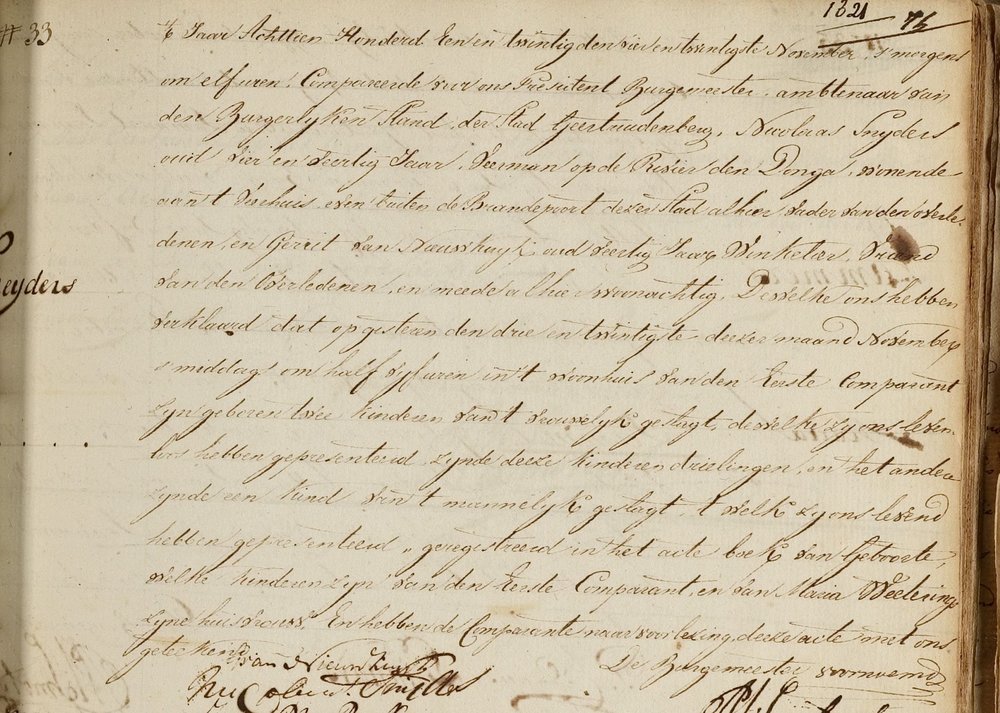 1821 75
# 33
't Jaar Achttien Honderd Een en twintig den vier en twentigste November, s'morgens
om elf uren, Compareerde voor ons President Burgemeester, ambtenaar van
den Burgerlyken Stand, der Stad Geertruidenberg, Nicolaas Snyders
oud vier en veertig Jaar, Veerman op de Rivier den Donga, wonende
aan 't Veerhuis, even buiten de Brandepoort dezer Stad alhier vader van den overle-
denen, en Gerrit van Nieuwkuyk, oud veertig Jaar, Winkelier, Vriend
eyders
van den Overledenen, en meede alhier woonachtig, Dewelke ons hebben
verklaard dat op gisteren den drie en twintigste deezer maand November
s'middags om half vyf uren in 't woonhuis van den Eerste Comparant
zyn geboren twee kinderen van 't vrouwelyk geslagt, dewelke zy ons leven-
loos hebben gepresenteerd, zynde deeze kinderen drielingen, en het andere
zynde een kind van 't mannelyk geslagt, 't welk zy ons levend
hebben gepresenteerd, geregestreerd in het acte boek van Geboorte,
welke kinderen zyn van den Eerste Comparant, en van Maria Weeterings
zyne huisvrouw. En hebben de Comparente naar voorlezing, deeze acte met ons
geteekend
De Burgemeester voornoemd
van Nieuwkuyk